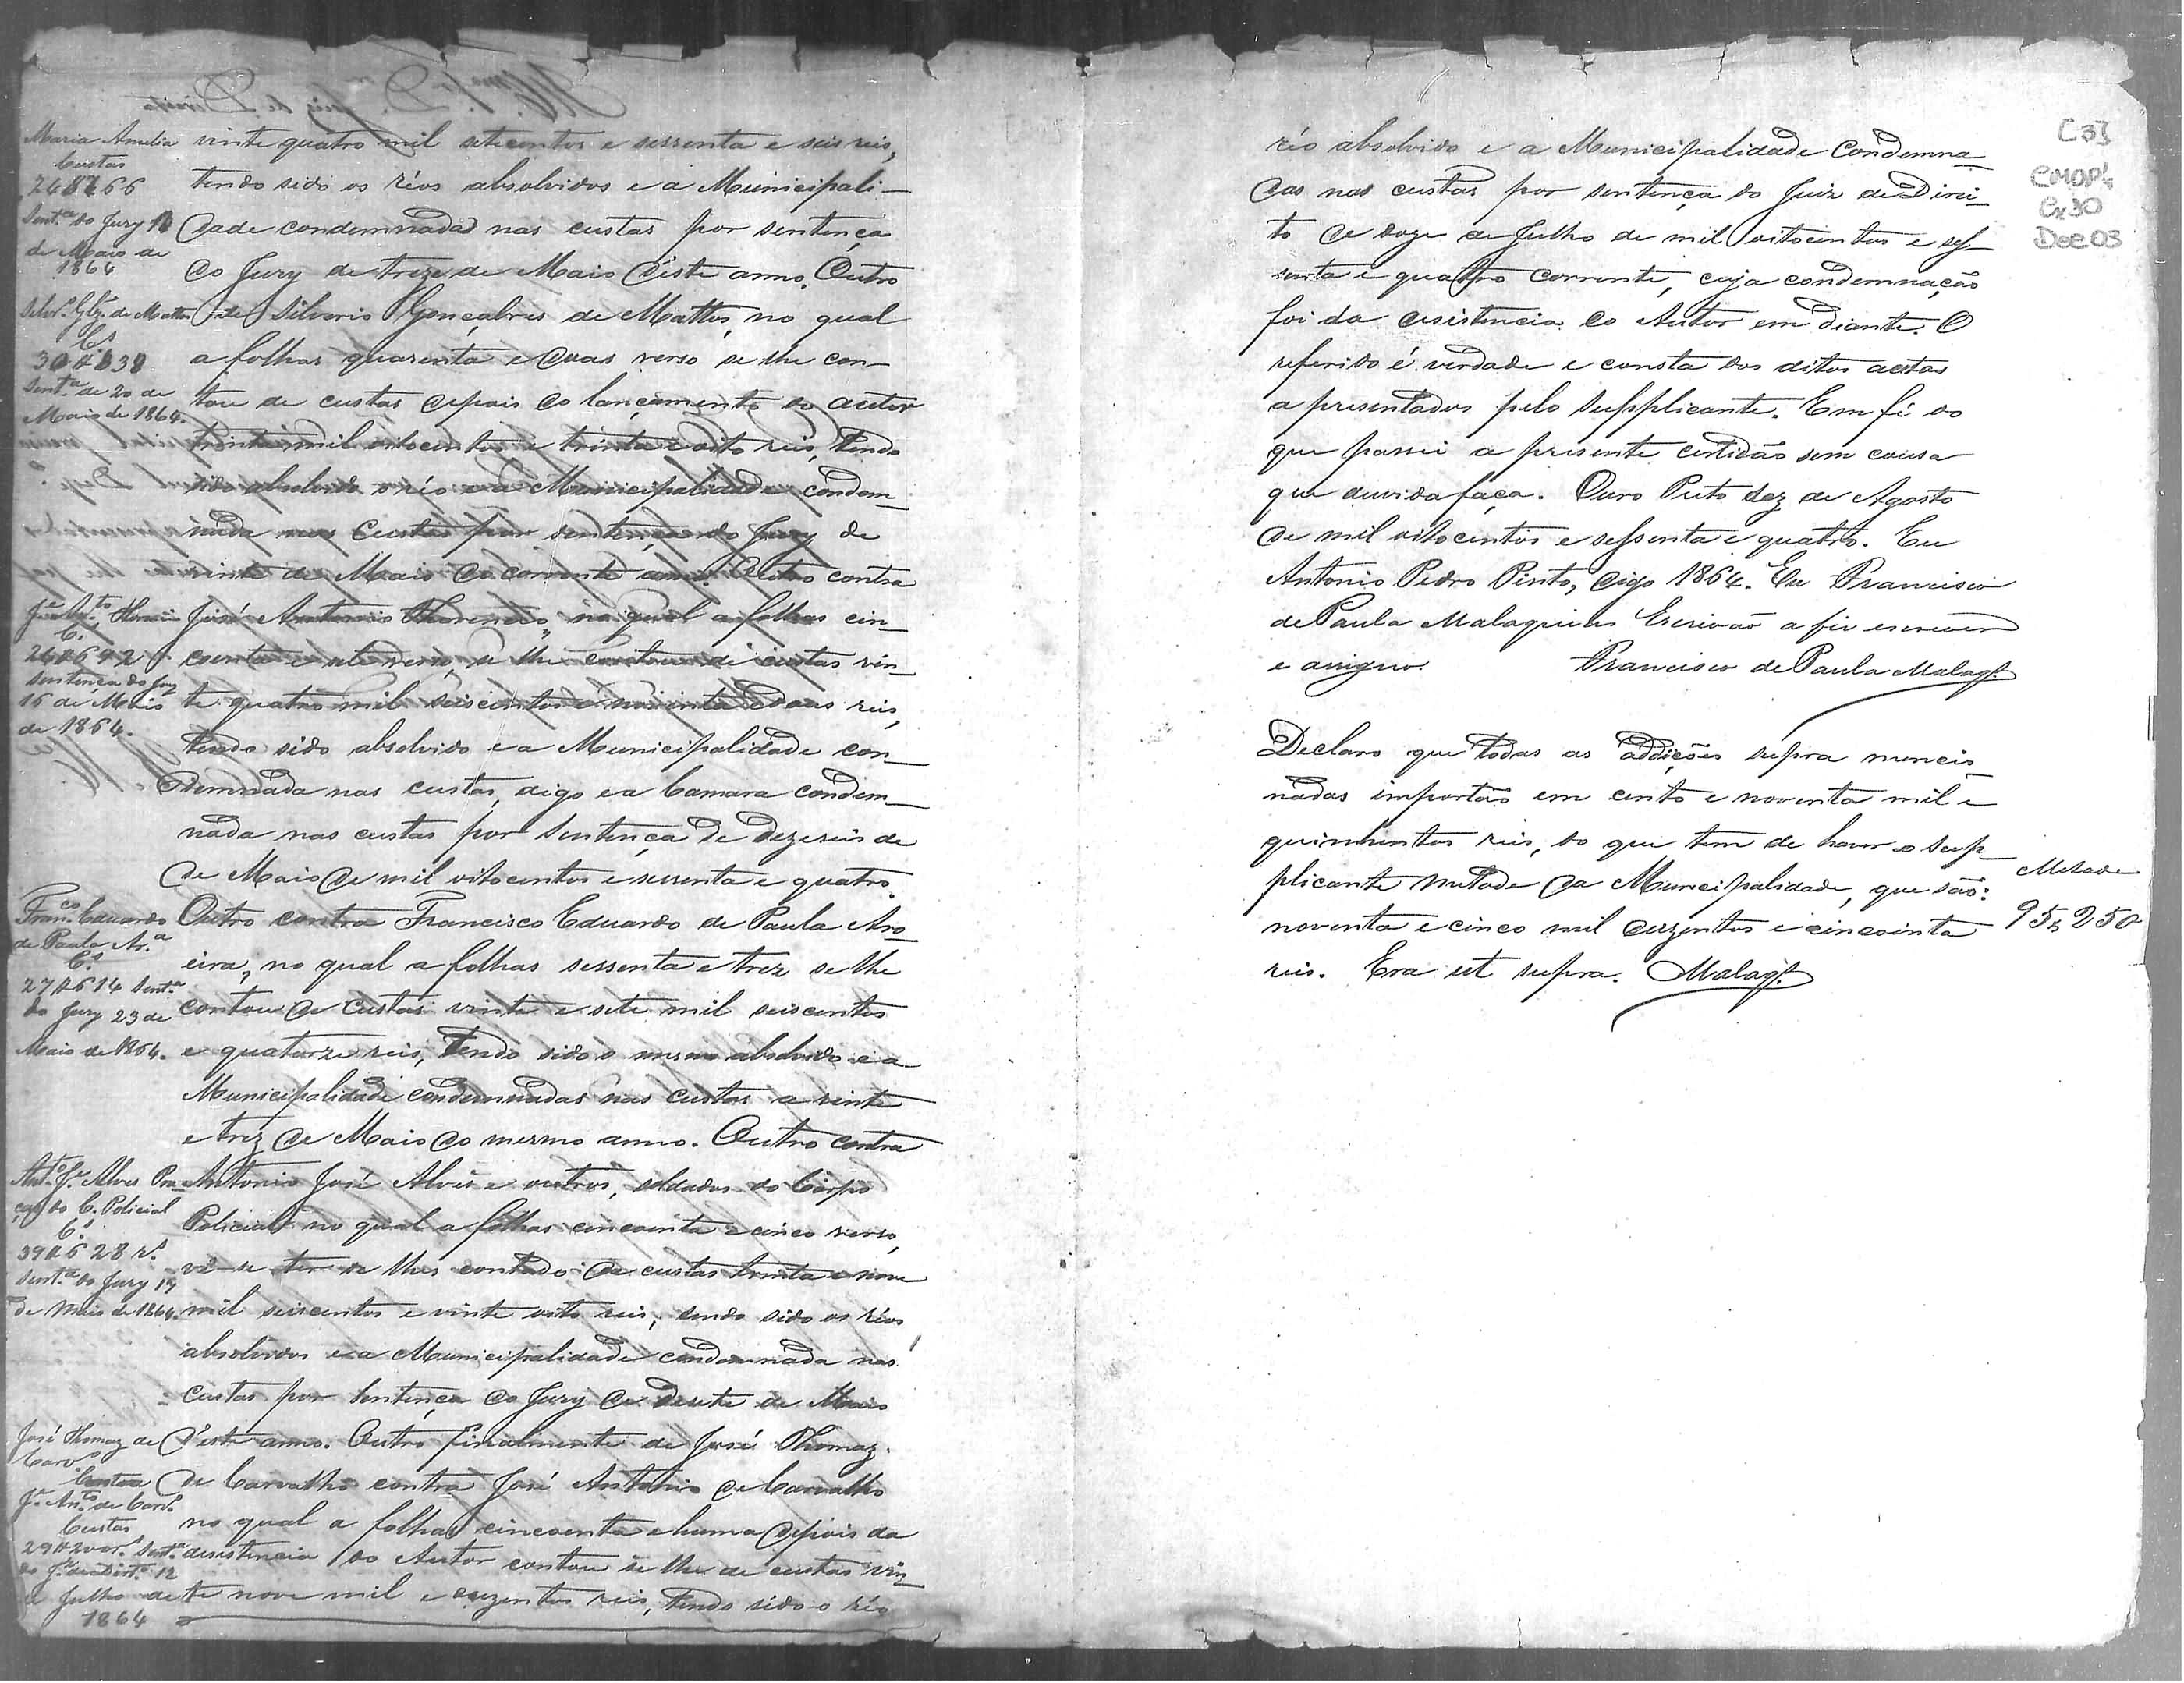 Maria Amelia
Custas
24$766
Sent.ª do Jury 13
de Maio de
1864
vinte quatro mil setecentos e sessenta e seis reis,
tendo sido os réos absolvidos e a Municipali-
dade condemnada nas custas por sentença
do Jury de treze de Maio d'este anno. Outro
Silvr.º Glz. de Mattos
C.s
30$838
Sent.ª de 20 de
Maio de 1864.
de Silverio Gonçalves de Mattos, no qual
a folhas quarenta e duas verso se lhe con-
tou de custas depois do lançamento do autor
trinta mil oitocentos e trinta e oito reis, tendo
sido absolvido o réo e a Municipalidade condem-
nada nas custas por sentença do Jury de
vinte de Maio do corrente anno. Outro contra
J.e Ant.º
C.
24$692
Sentença do Jury
16 de Maio
de 1864.
José Antonio no qual a folhas cin-
coenta e sete verso, se lhe contou de custas vin-
te quatro mil seiscentos e noventa e duas reis,
tendo sido absolvido e a Municipalidade con-
demnada nas custas, digo e a Camara condem-
nada nas custas por sentença de dezeseis de
de Maio de mil oitocentos e sessenta e quatro.
Fran.co Eduardo
de Paula Ar.a
C.s
27$614 Sent.ª
do Jury 23 de
Maio de 1864.
Outro contra Francisco Eduardo de Paula Aro-
eira, no qual a folhas sessenta e trez se lhe
contou de custas vinte e sete mil seiscentos
e quatorze reis, tendo sido o mesmo absolvido e a
Municipalidade condemnadas nas custas a vinte
e trez de Maio do mesmo anno. Outro contra
Ant.º J.e Alves Pra-
ças do C. Policial
C.s
39$628 r.s
Sent.ª do Jury 17
de Maio de 1864.
Antonio José Alves e outros, soldados do Corpo
Policial no qual a folhas cincoenta e cinco verso,
vê-se ter se lhes contado de custas trinta e nove
mil seiscentos e vinte oito reis, tendo sido os réos
absolvidos e a Municipalidade condemnada nas
custas por sentença do Jury de desete de Maio
José Thomaz de
Carv.º
Contra
J.e An.to de Carv.º
Custas
29$200 r.s Sent.ª
do J. de Dirt.º 12
de Julho de
1864
d'este anno. Outro finalmente de José Thomaz
de Carvalho contra José Antonio de Carvalho
no qual a folhas cincoenta e huma depois da
desistencia do Autor contou se lhe de custas vin-
te nove mil e duzentos reis, tendo sido o réo
C3J
CMOP
Cx30
Doc 03
réo absolvido e a Municipalidade condemna-
das nas custas por sentença do Juiz de Direi-
to de doze de Julho de mil oitocentos e ses-
senta e quatro corrente, cuja condemnação
foi da desistencia do Autor em diante. O
referido é verdade e consta dos ditos autos
apresentados pelo Supplicante. Em fé do
que passei a presente certidão sem cousa
que duvida faça. Ouro Preto dez de Agosto
de mil oitocentos e sessenta e quatro. Eu
Antonio Pedro Pinto, digo 1864. Eu Francisco
de Paula Malaquias Escrivão a fiz escrever
e assigno. Francisco de Paula Malaqs.
Declaro que todas as addições supra mencio-
nadas importão em cento e noventa mil e
quinhentos reis, do que tem de haver o Sup-
plicante metade da Municipalidade, que são:
noventa e cinco mil duzentos e cincoenta
reis. Era ut supra. Malaqs.
Metade
95$250